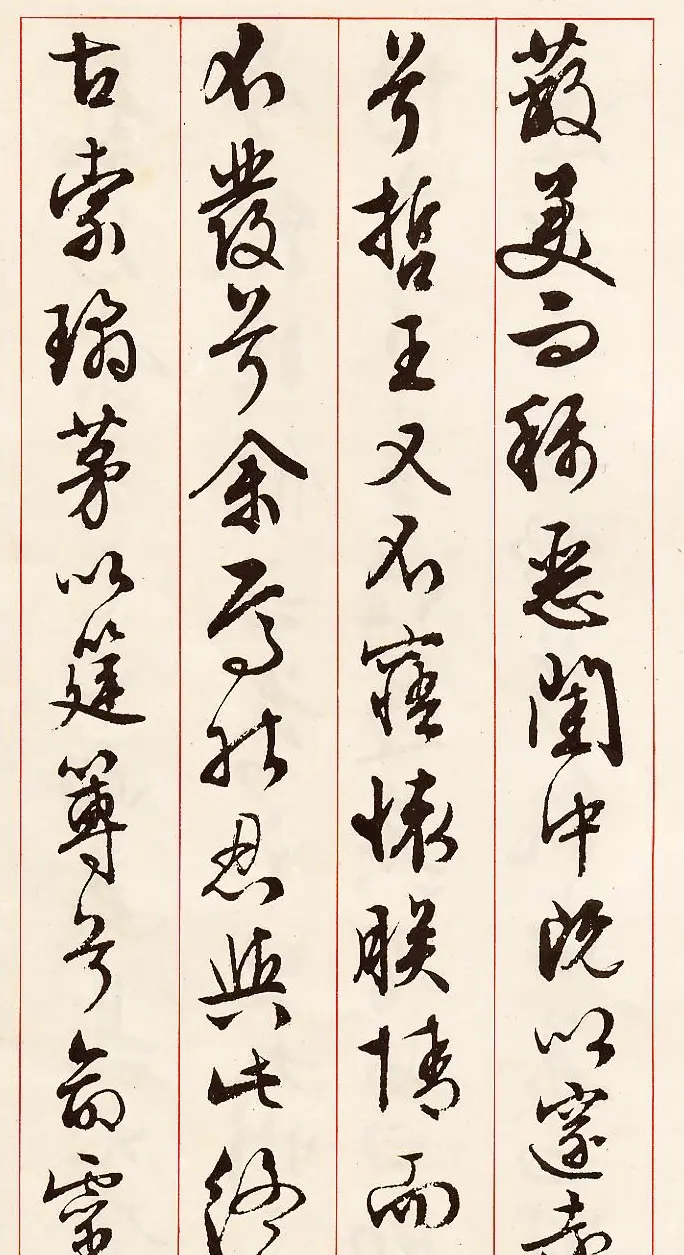 蔽美而稱惡閨中既以邃遠
兮哲王又不寤懷朕情而
不發兮余焉能忍與此終
古索瓊茅以筳篿兮命靈